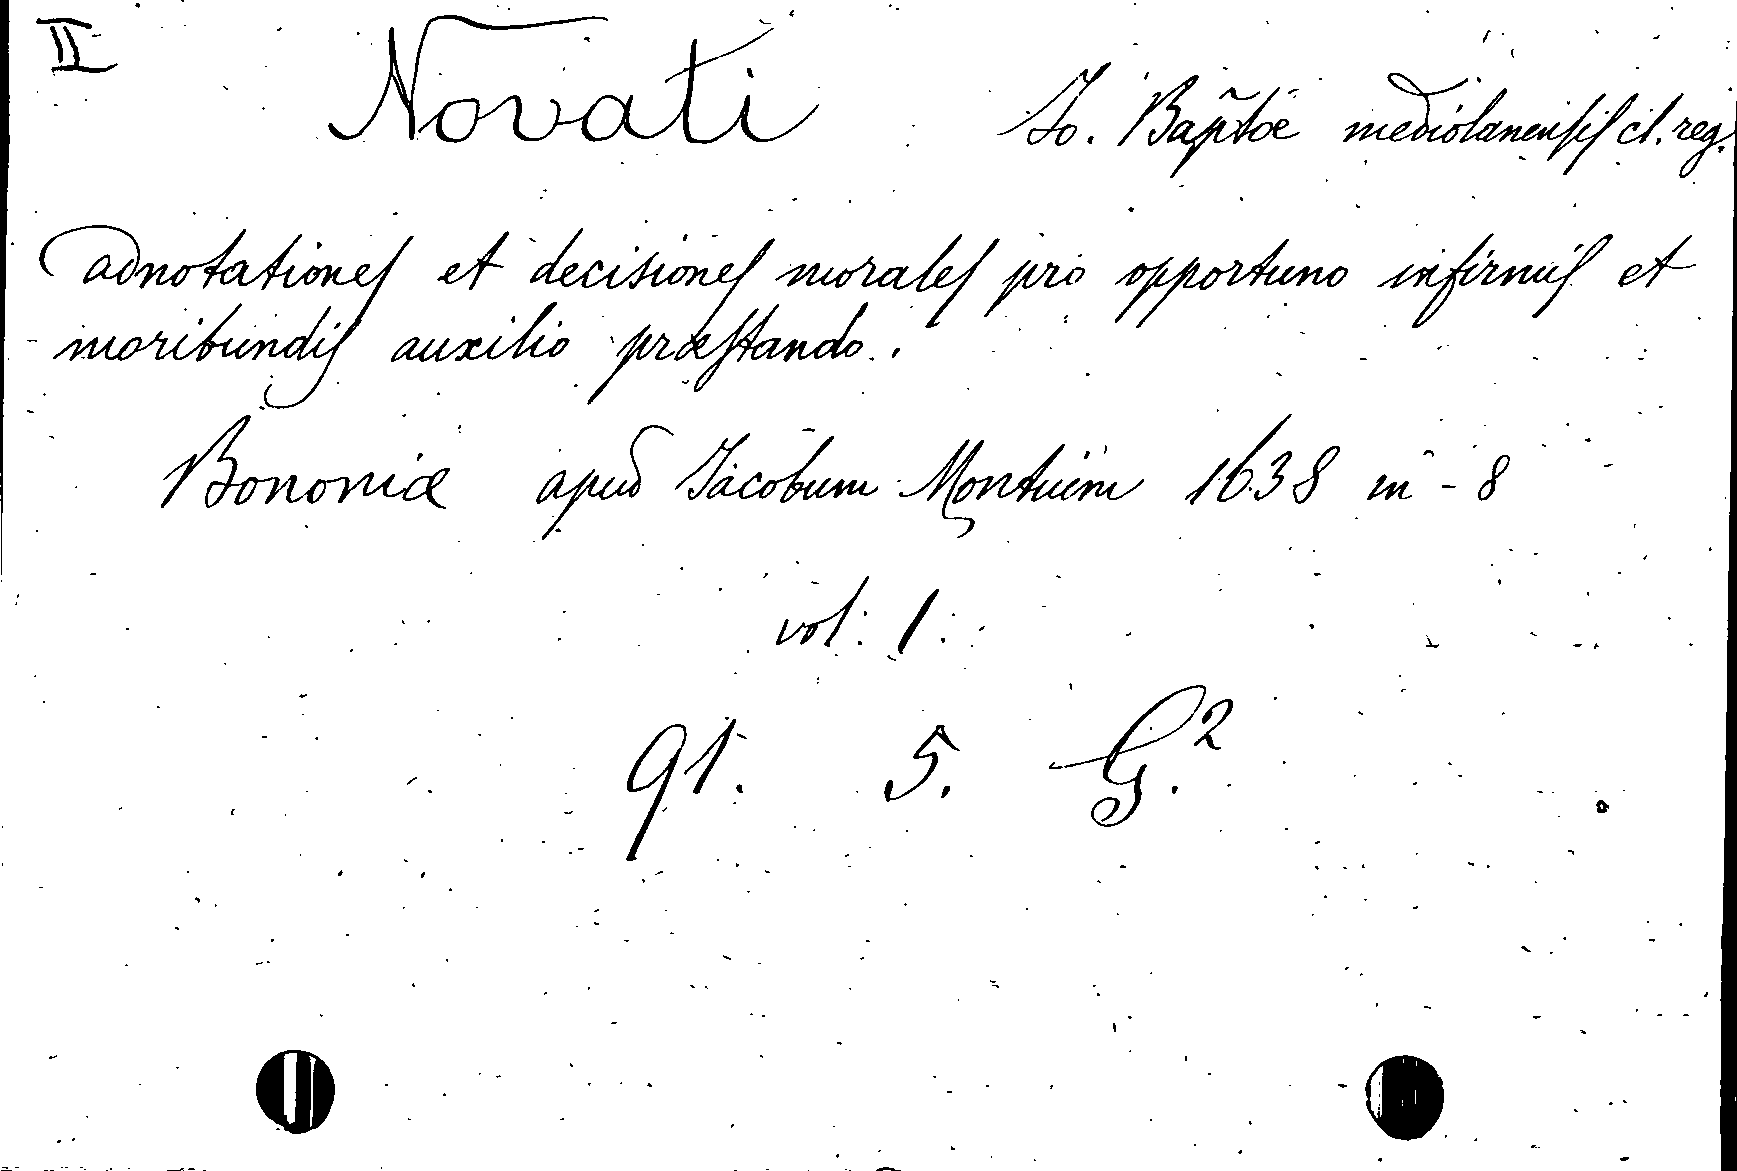 II
Novati Jo. Bap̃tæ mediolanensis cl. reg.
adnotationes et decisiones morales pro opportuno infirmis et
moribundis auxilio præstando.
Bononiæ apud Jacobum Montium 1638 in - 8
vol. 1.
91. 5. G.²